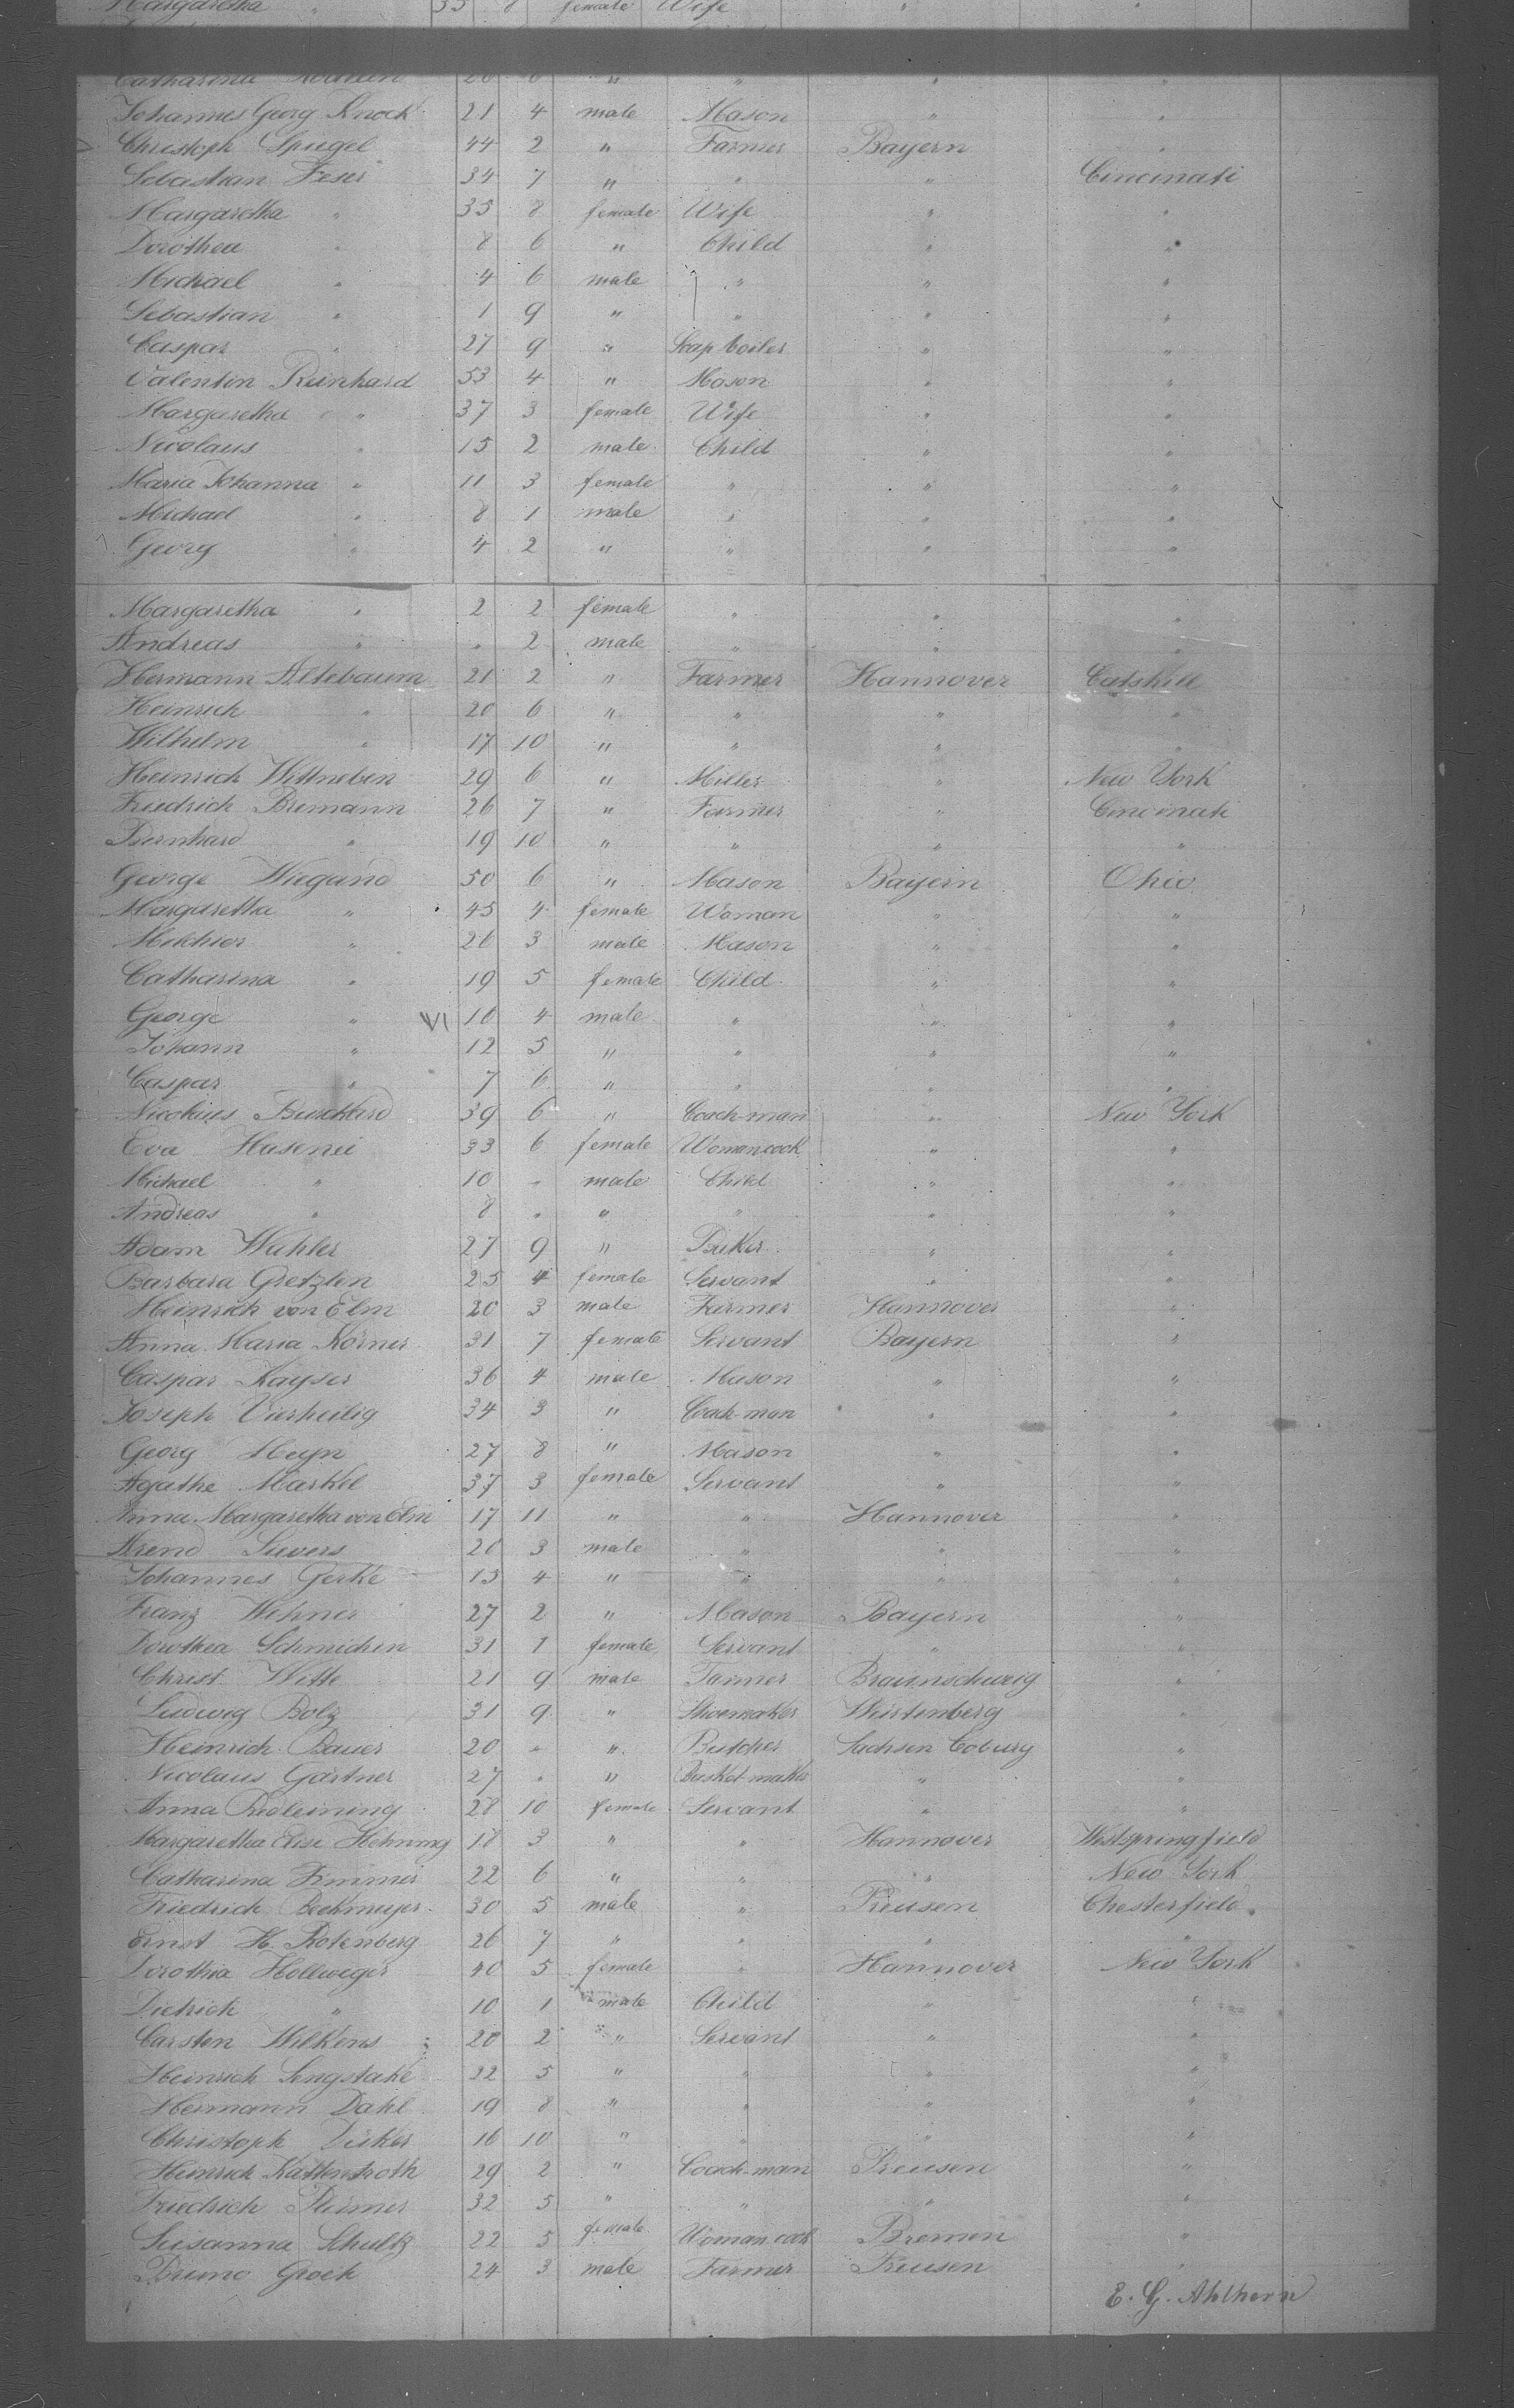 Margaretha " 35 8 female Wife " "
Catharina 20 6 " " " "
Johannes Georg Knock 21 4 male Mason " "
Christoph Spiegel 44 2 " Farmer Bayern "
Sebastian Feser 34 7 " " " Cincinati
Margaretha " 35 8 female Wife " "
Dorothea " 8 6 " Child " "
Michael " 4 6 male " " "
Sebastian " 1 9 " " " "
Caspar " 27 9 " Soap-boiler " "
Valentin Reinhard 53 4 " Mason " "
Margaretha " 37 3 female Wife " "
Nicolaus " 15 2 male Child " "
Maria Johanna " 11 3 female " " "
Michael " 8 1 male " " "
Georg " 4 2 " " " "
Margaretha " 2 2 female " " "
Andreas " " 2 male " " "
Hermann Altebaum 21 2 " Farmer Hannover Catskill
Heinrich " 20 6 " " " "
Wilhelm " 17 10 " " " "
Heinrich Wittneben 29 6 " Miller " New York
Friedrich Bremann 26 7 " Farmer " Cincinati
Bernhard " 19 10 " " " "
George Wiegand 50 6 " Mason Bayern Ohio
Margaretha " 45 4 female Woman " "
Melchior " 26 3 male Mason " "
Catharina " 19 5 female Child " "
George " 16 4 male " " "
Johann " 12 5 " " " "
Caspar " 7 6 " " " "
Nicolaus Burckard 39 6 " Coach-man " New York
Eva Hasenei 33 6 female Woman cook " "
Michael " 10 " male Child " "
Andreas " 8 " " " " "
Adam Wahler 27 9 " Baker " "
Barbara Gretzlen 25 4 female Servant " "
Heinrich von Elm 20 3 male Farmer Hannover "
Anna Maria Körner 31 7 female Servant Bayern "
Caspar Kayser 36 4 male Mason " "
Joseph Vierheilig 34 3 " Coach-man " "
Georg Heyn 27 8 " Mason " "
Agathe Markel 37 3 female Servant " "
Anna Margaretha von Elm 17 11 " " Hannover "
Arend Sievers 20 3 male " " "
Johannes Gerke 15 4 " " " "
Franz Wehner 27 2 " Mason Bayern "
Dorothea Schmichen 31 1 female Servant " "
Christ. Witte 21 9 male Farmer Braunschweig "
Ludwig Bolz 31 9 " Shoemaker Würtenberg "
Heinrich Bauer 20 " " Butcher Sachsen Coburg "
Nicolaus Gärtner 27 " " Basket-maker " "
Anna 28 10 female Servant " "
Margaretha Elise Hehning 18 3 " " Hannover Westspringfield
Catharina Fimmer 22 6 " " " New York
Friedrich Beckmeyer 30 5 male " Preusen Chesterfield
Ernst H. Rotenberg 26 7 " " " "
Dorothea Hollweger 40 5 female " Hannover New York
Dietrich " 10 1 male Child " "
Carsten Wilkens 20 2 " Servant " "
Heinrich Sengstake 22 5 " " " "
Hermann Dahl 19 8 " " " "
Christoph Düker 16 10 " " " "
Heinrich Kattenstroth 29 2 " Coach-man Preusen "
Friedrich 32 5 " " " "
Susanna Schultz 22 5 female Woman cook Bremen "
Bruno Groek 24 3 male Farmer Preusen "
E. G. Ahlhorn